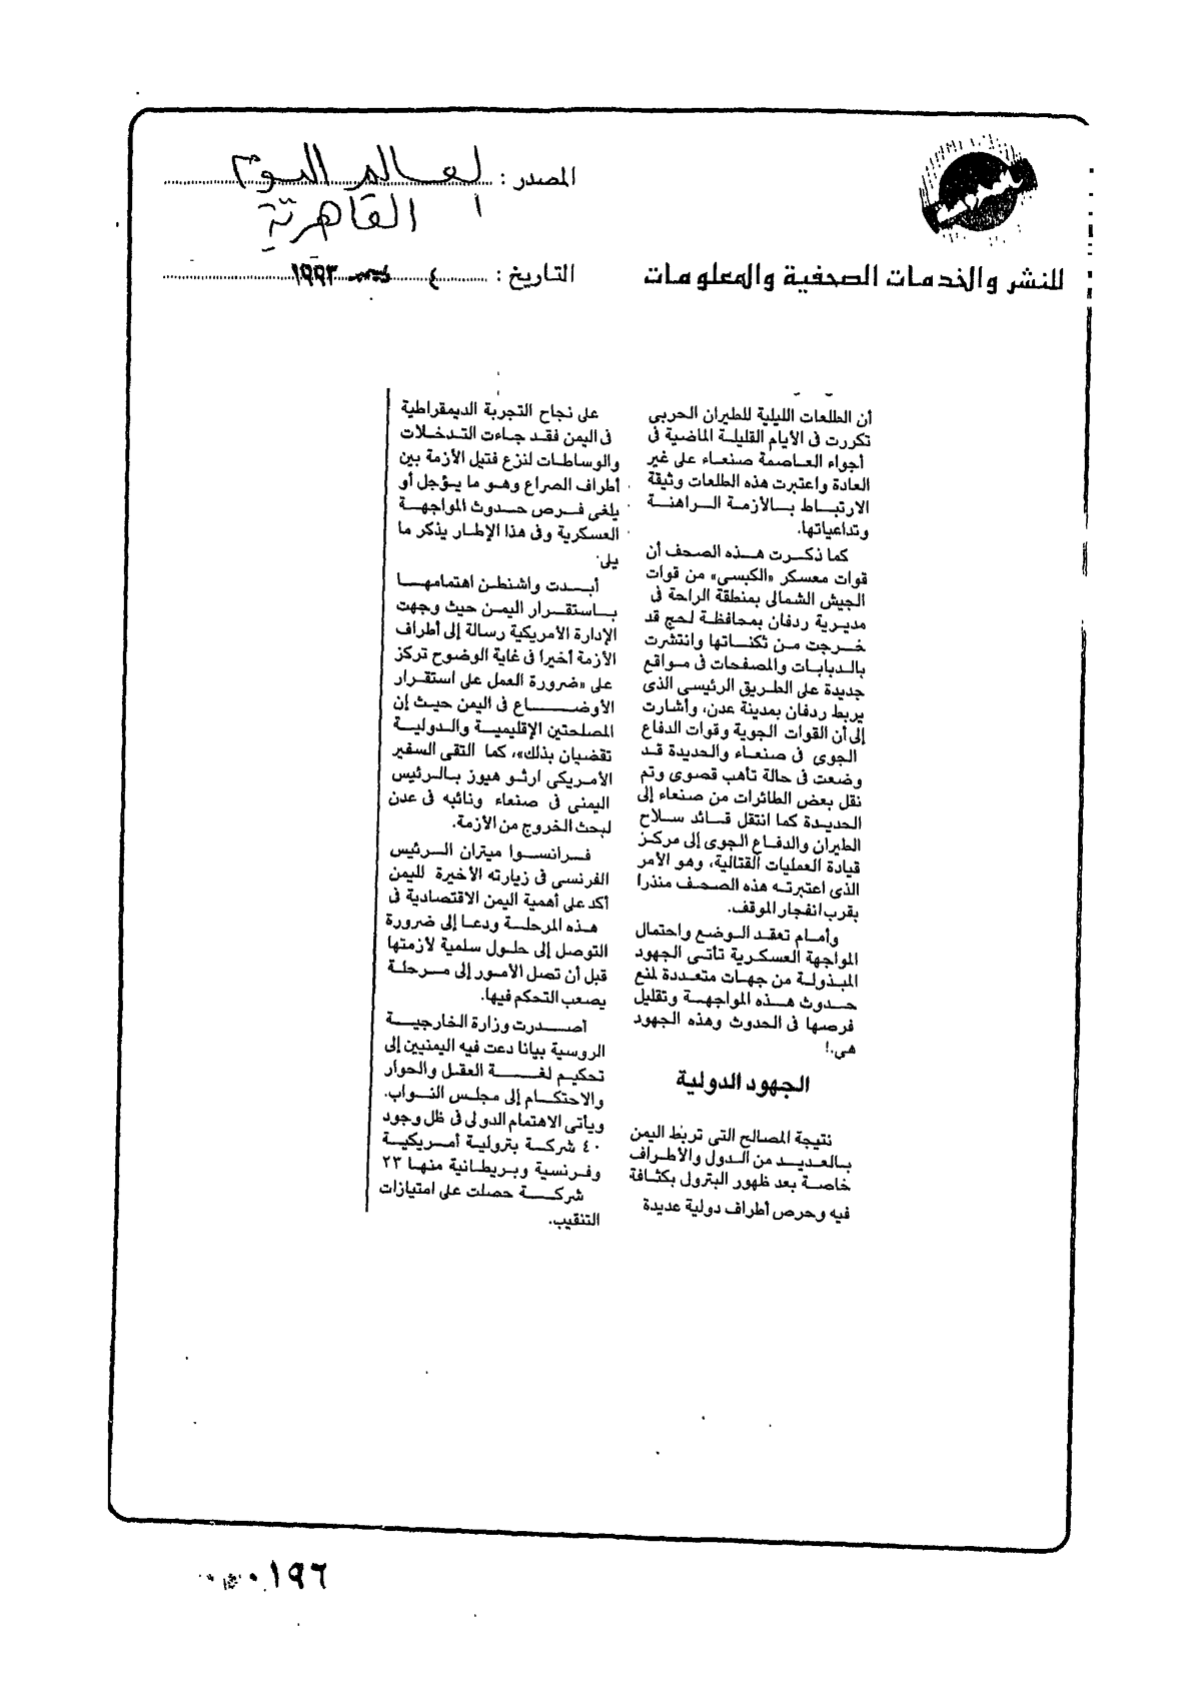 المصدر : العالم اليوم
القاهرية
للنشر والخدمات الصحفية والمعلومات
التاريخ : ٤ ديسمبر ١٩٩٣
أن الطلعات الليلية للطيران الحربى
تكررت فى الأيام القليلة الماضية فى
أجواء العاصمة صنعاء على غير
العادة واعتبرت هذه الطلعات وثيقة
الارتباط بالأزمة الراهنة
وتداعياتها.
كما ذكرت هذه الصحف أن
قوات معسكر «الكبسى» من قوات
الجيش الشمالى بمنطقة الراحة فى
مديرية ردفان بمحافظة لحج قد
خرجت من ثكناتها وانتشرت
بالدبابات والمصفحات فى مواقع
جديدة على الطريق الرئيسى الذى
يربط ردفان بمدينة عدن، وأشارت
إلى أن القوات الجوية وقوات الدفاع
الجوى فى صنعاء والحديدة قد
وضعت فى حالة تأهب قصوى وتم
نقل بعض الطائرات من صنعاء إلى
الحديدة كما انتقل قائد سلاح
الطيران والدفاع الجوى إلى مركز
قيادة العمليات القتالية، وهو الأمر
الذى اعتبرته هذه الصحف منذرا
بقرب انفجار الموقف.
وأمام تعقد الوضع واحتمال
المواجهة العسكرية تأتى الجهود
المبذولة من جهات متعددة لمنع
حدوث هذه المواجهة وتقليل
فرصها فى الحدوث وهذه الجهود
هى.!
الجهود الدولية
نتيجة المصالح التى تربط اليمن
بالعديد من الدول والأطراف
خاصة بعد ظهور البترول بكثافة
فيه وحرص أطراف دولية عديدة
على نجاح التجربة الديمقراطية
فى اليمن فقد جاءت التدخلات
والوساطات لنزع فتيل الأزمة بين
أطراف الصراع وهو ما يؤجل أو
يلغى فرص حدوث المواجهة
العسكرية وفى هذا الإطار يذكر ما
يلى
أبدت واشنطن اهتمامها
باستقرار اليمن حيث وجهت
الإدارة الأمريكية رسالة إلى أطراف
الأزمة أخيرا فى غاية الوضوح تركز
على «ضرورة العمل على استقرار
الأوضاع فى اليمن حيث إن
المصلحتين الإقليمية والدولية
تقضيان بذلك»، كما التقى السفير
الأمريكى ارثو هيوز بالرئيس
اليمنى فى صنعاء ونائبه فى عدن
لبحث الخروج من الأزمة.
فرانسوا ميتران الرئيس
الفرنسى فى زيارته الأخيرة لليمن
أكد على أهمية اليمن الاقتصادية فى
هذه المرحلة ودعا إلى ضرورة
التوصل إلى حلول سلمية لأزمتها
قبل أن تصل الأمور إلى مرحلة
يصعب التحكم فيها.
أصدرت وزارة الخارجية
الروسية بيانا دعت فيه اليمنيين إلى
تحكيم لغة العقل والحوار
والاحتكام إلى مجلس النواب.
ويأتى الاهتمام الدولى فى ظل وجود
٤٠ شركة بترولية أمريكية
وفرنسية وبريطانية منها ٢٣
شركة حصلت على امتيازات
التنقيب.
٠١٩٦